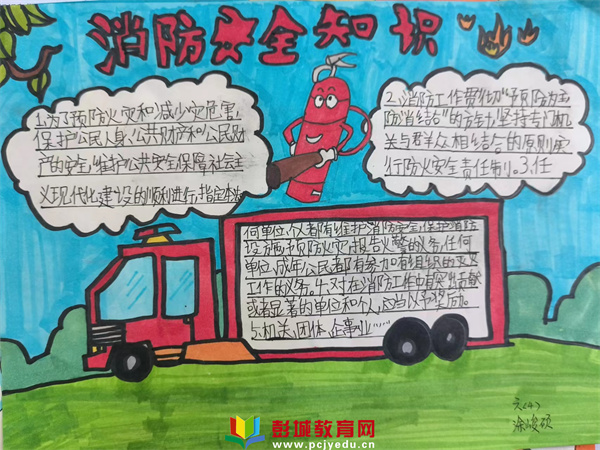 消防安全知识
1.为了预防火灾和减少灾危害,
保护公民人身、公共财产和公民财
产的安全,维护公共安全保障社会主
义现代化建设的顺利进行,指定本
2.消防工作贯彻“预防为主
防消结合”的方针,坚持专门机
关与群众相结合的原则,实
行防火安全责任制。3.任
何单位、个人都有维护消防安全,保护消防
设施,预防火灾,报告火警的义务,任何
单位、成年公民都有参加有组织的灭火
工作的义务。4.对在消防工作中有突出贡献
或者显著的单位和个人,应当以予奖励。
5.机关、团体、企事业……
六(4)
涂浚硕
彭城教育网
www.pcjyedu.cn